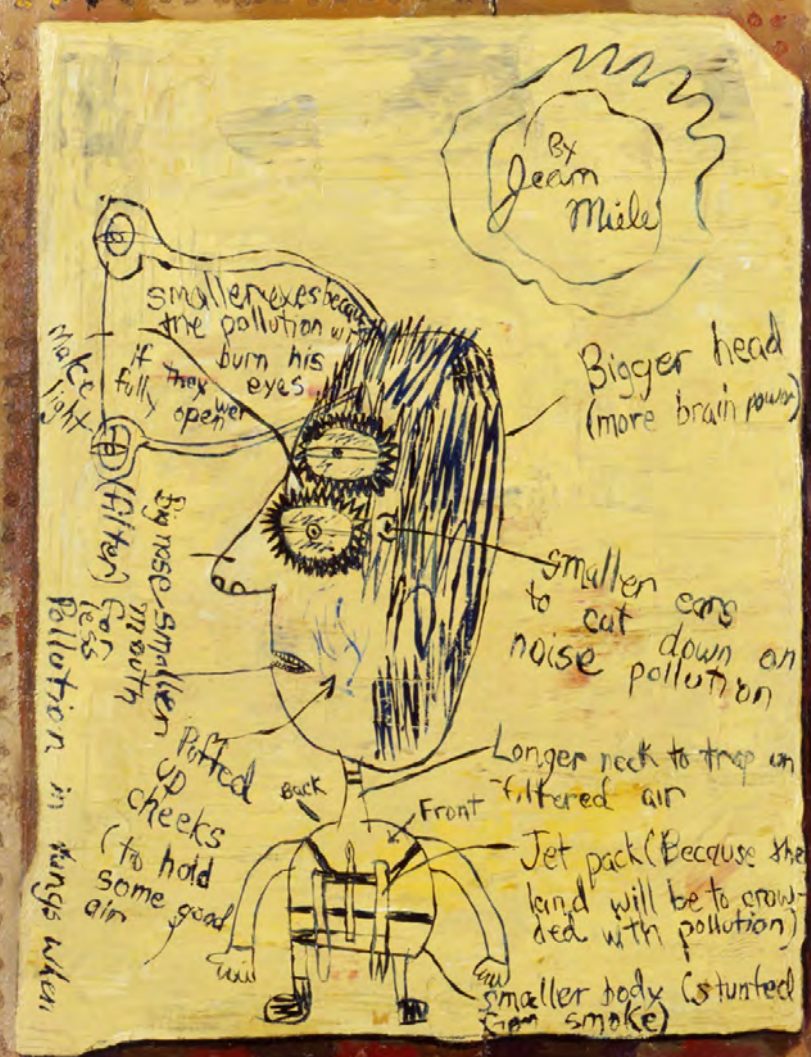 By
Jean
Miele
smaller eyes because
the pollution will
burn his
eyes
if they wer
fully open
Make
light
Bigger head
(more brain power)
smaller ears
to cut down on
noise pollution
Big nose
(filter)
smaller
mouth
for
less
Pollution in lungs when
Puffed
up
cheeks
(to hold
some good
air
Back
Front
Longer neck to trap un
-filtered air
Jet pack (Because the
land will be to crow-
ded with pollution)
smaller body (stunted
from smoke)